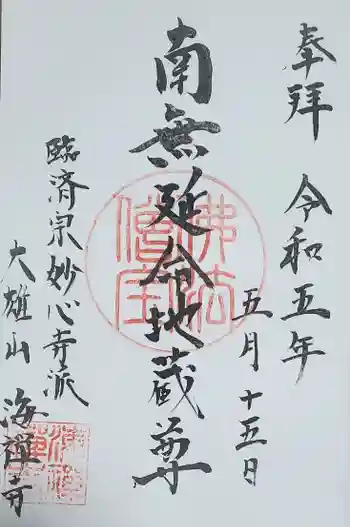 奉拝
令和五年
五月十五日
南無延命地蔵尊
佛法僧宝
臨済宗妙心寺派
大雄山海禅寺